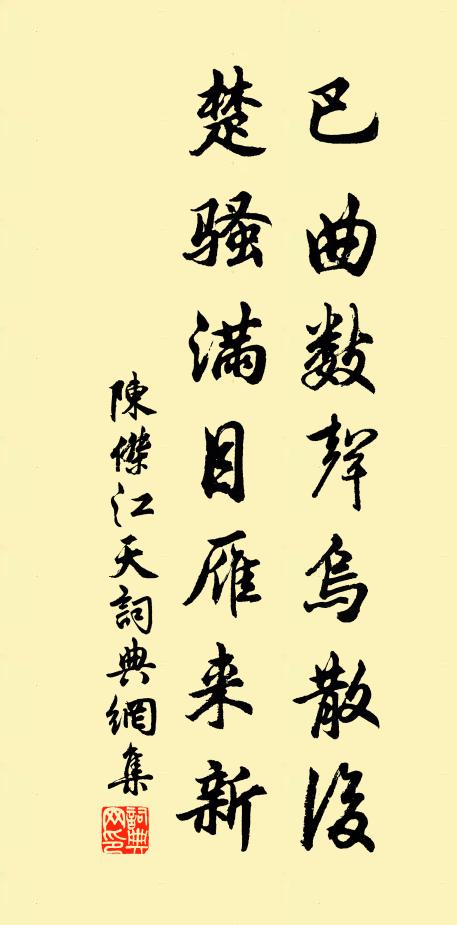 巴曲数聲烏散後
楚騷滿目雁来新
陳傑江天詞典網集
詞典網印